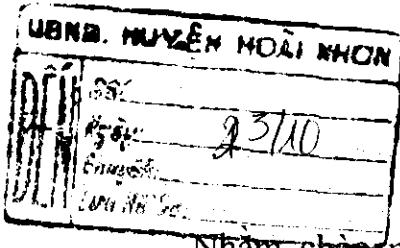 UBND. HUYỆN HOÀI NHƠN
ĐẾN
Số:
Ngày: 23/10
Chuyển:
Lưu hồ sơ:
Nhằm